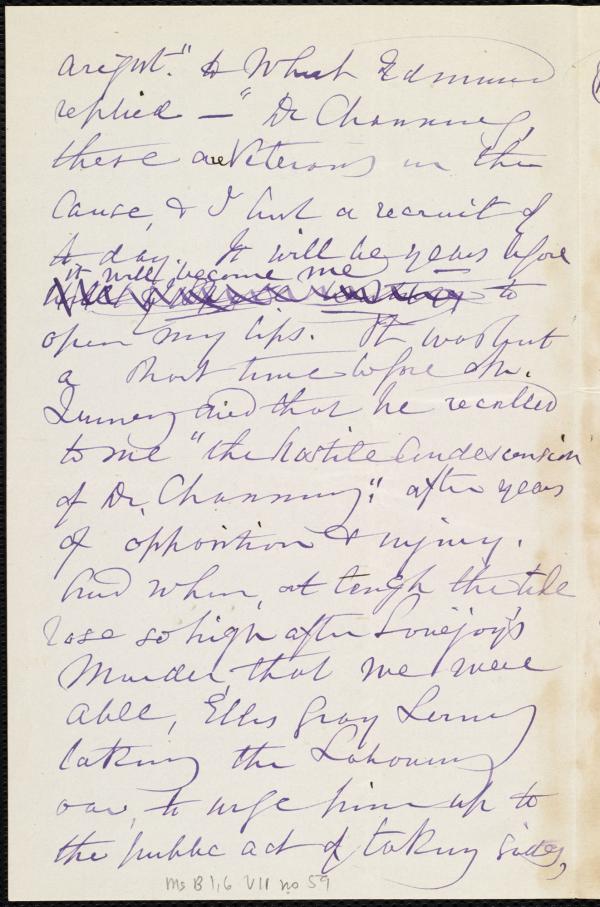 aright." To which Edmund
replied — "Dr Channing,
these are Veterans in the
Cause, & I but a recruit of
to day. It will be years before
it will become me
to
open my lips. It was but
a short time before Mr.
Quincy died that he recalled
to me "the hostile Condescension
of Dr. Channing": after years
of opposition & injury.
And when, at length the tide
rose so high after Lovejoy's
Murder, that we were
able, Ellis Gray Loring
taking the Labouring
oar, to urge him up to
the public act of taking sides,
Ms B 1.6 VII no 59